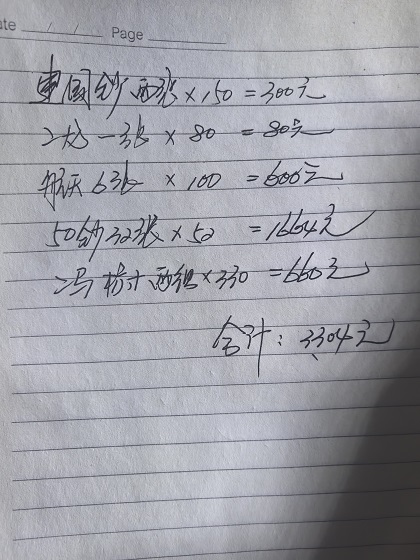 ate / /
Page
建国钞 两张 × 150 = 300元
二龙一张 × 80 = 80元
航天 6张 × 100 = 600元
50钞 32张 × 52 = 1664元
二马 梅十 两组 × 330 = 660元
合计: 3304元